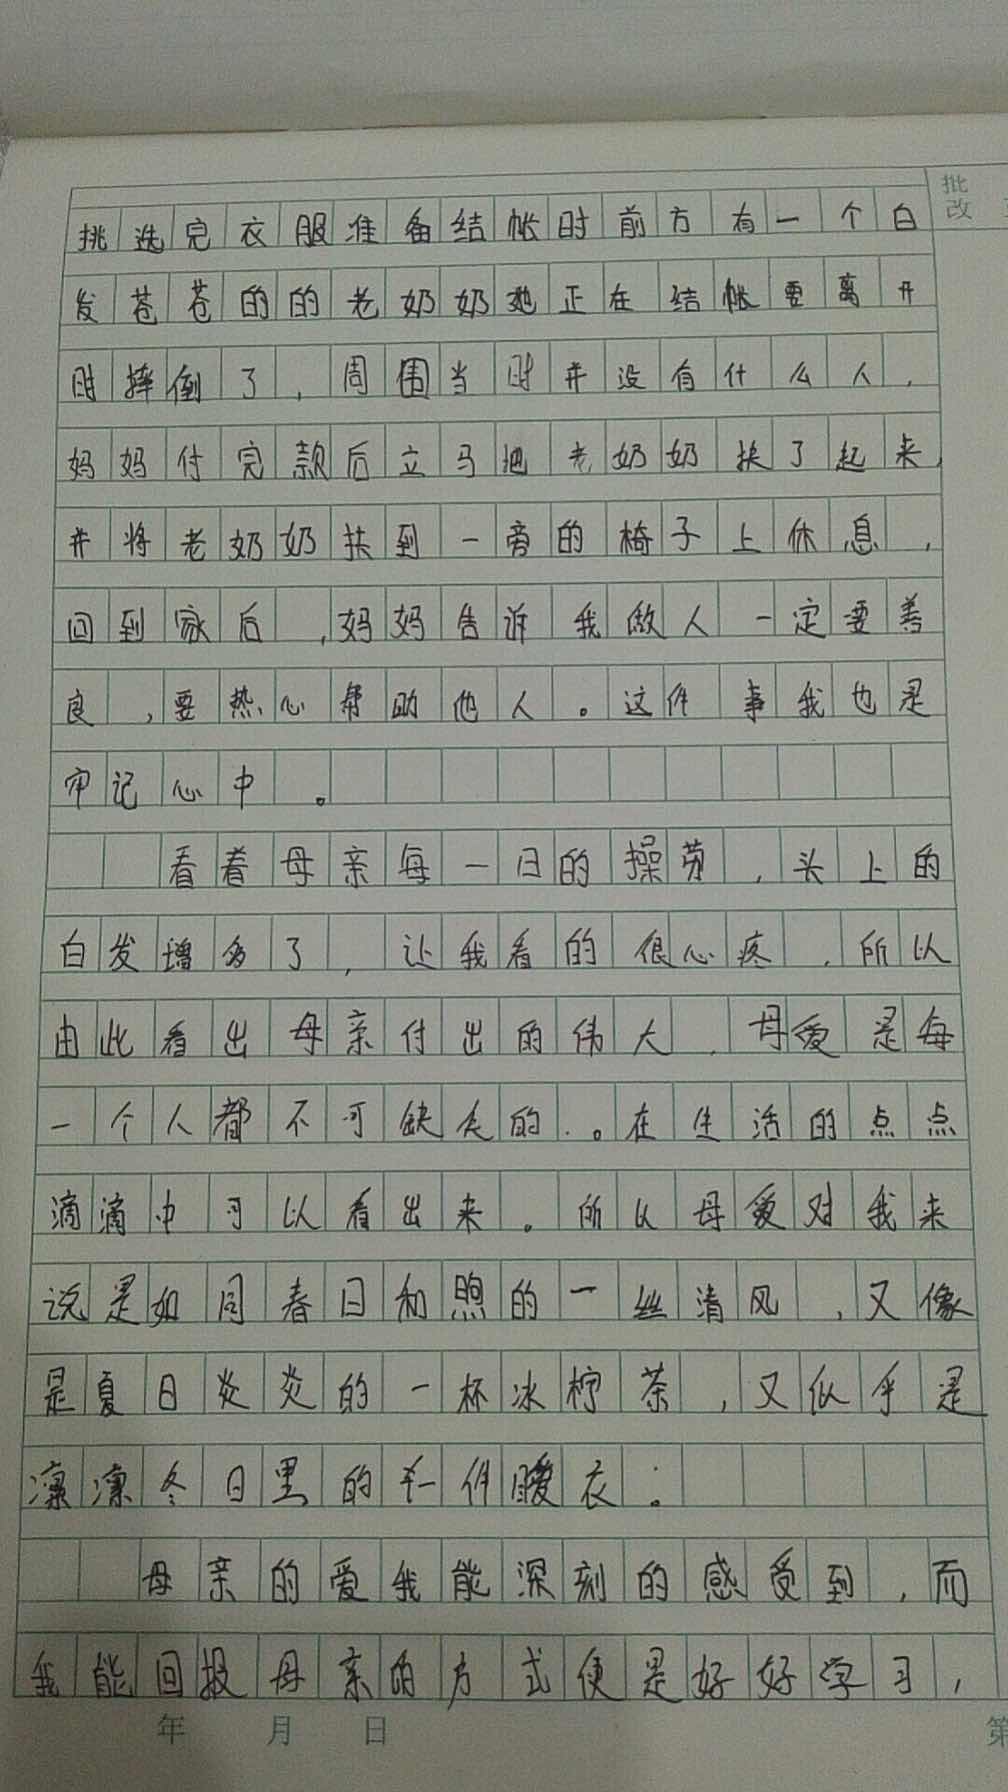 批
改
挑选完衣服准备结帐时前方有一个白
发苍苍的的老奶奶她正在结帐要离开
时摔倒了,周围当时并没有什么人,
妈妈付完款后立马把老奶奶扶了起来,
并将老奶奶扶到一旁的椅子上休息,
回到家后,妈妈告诉我做人一定要善
良,要热心帮助他人。这件事我也是
牢记心中。
看着母亲每一日的操劳,头上的
白发增多了,让我看的很心疼,所以
由此看出母亲付出的伟大,母爱是每
一个人都不可缺失的.。在生活的点点
滴滴中可以看出来。所以母爱对我来
说是如同春日和煦的一丝清风,又像
是夏日炎炎的一杯冰柠茶,又似乎是
凛凛冬日里的一件暖衣。
母亲的爱我能深刻的感受到,而
我能回报母亲的方式便是好好学习,
年 月 日 第